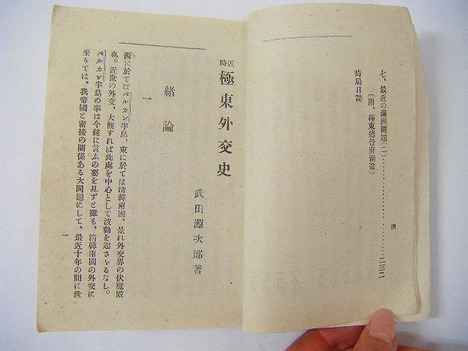 七、最近の滿洲問題(二)…………二三二
(附、極東總督府新設)
時局日誌
四
近時 極東外交史
武田源次郎著
緒論
一
西に於てはバルカン半島、東に於ては淸韓兩國、是れ外交界の伏魔殿
也。近世の外交、大觀すれば此處を中心として波動を起さゞるなし。
バルカン半島の事は今玆に言ふの要を見ずと雖も、淸韓兩國の外交に
至りては、我帝國と密接の關係ある大問題にして、最近十年の間に世
一